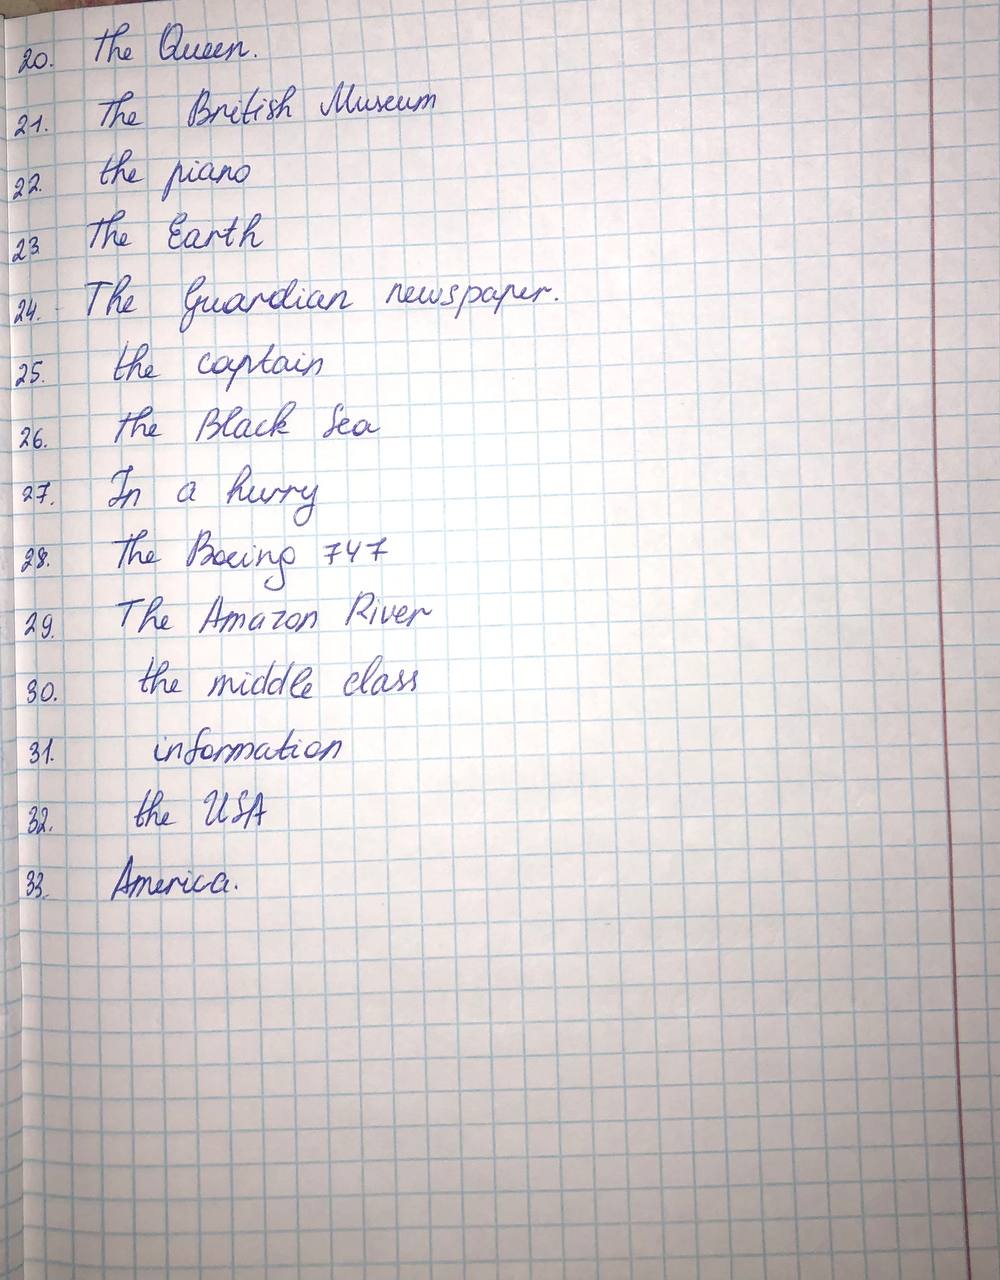 20. the Queen.
21. the British Museum
22. the piano
23 the Earth
24. The Guardian newspaper.
25. the captain
26. the Black Sea
27. In a hurry
28. the Boeing 747
29. The Amazon River
30. the middle class
31. information
32. the USA
33. America.